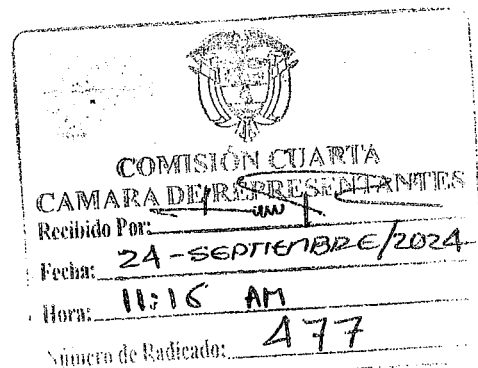 COMISIÓN CUARTA
CAMARA DE REPRESENTANTES
Recibido Por:
Fecha: 24-SEPTIEMBRE/2024
Hora: 11:16 AM
Número de Radicado: 477